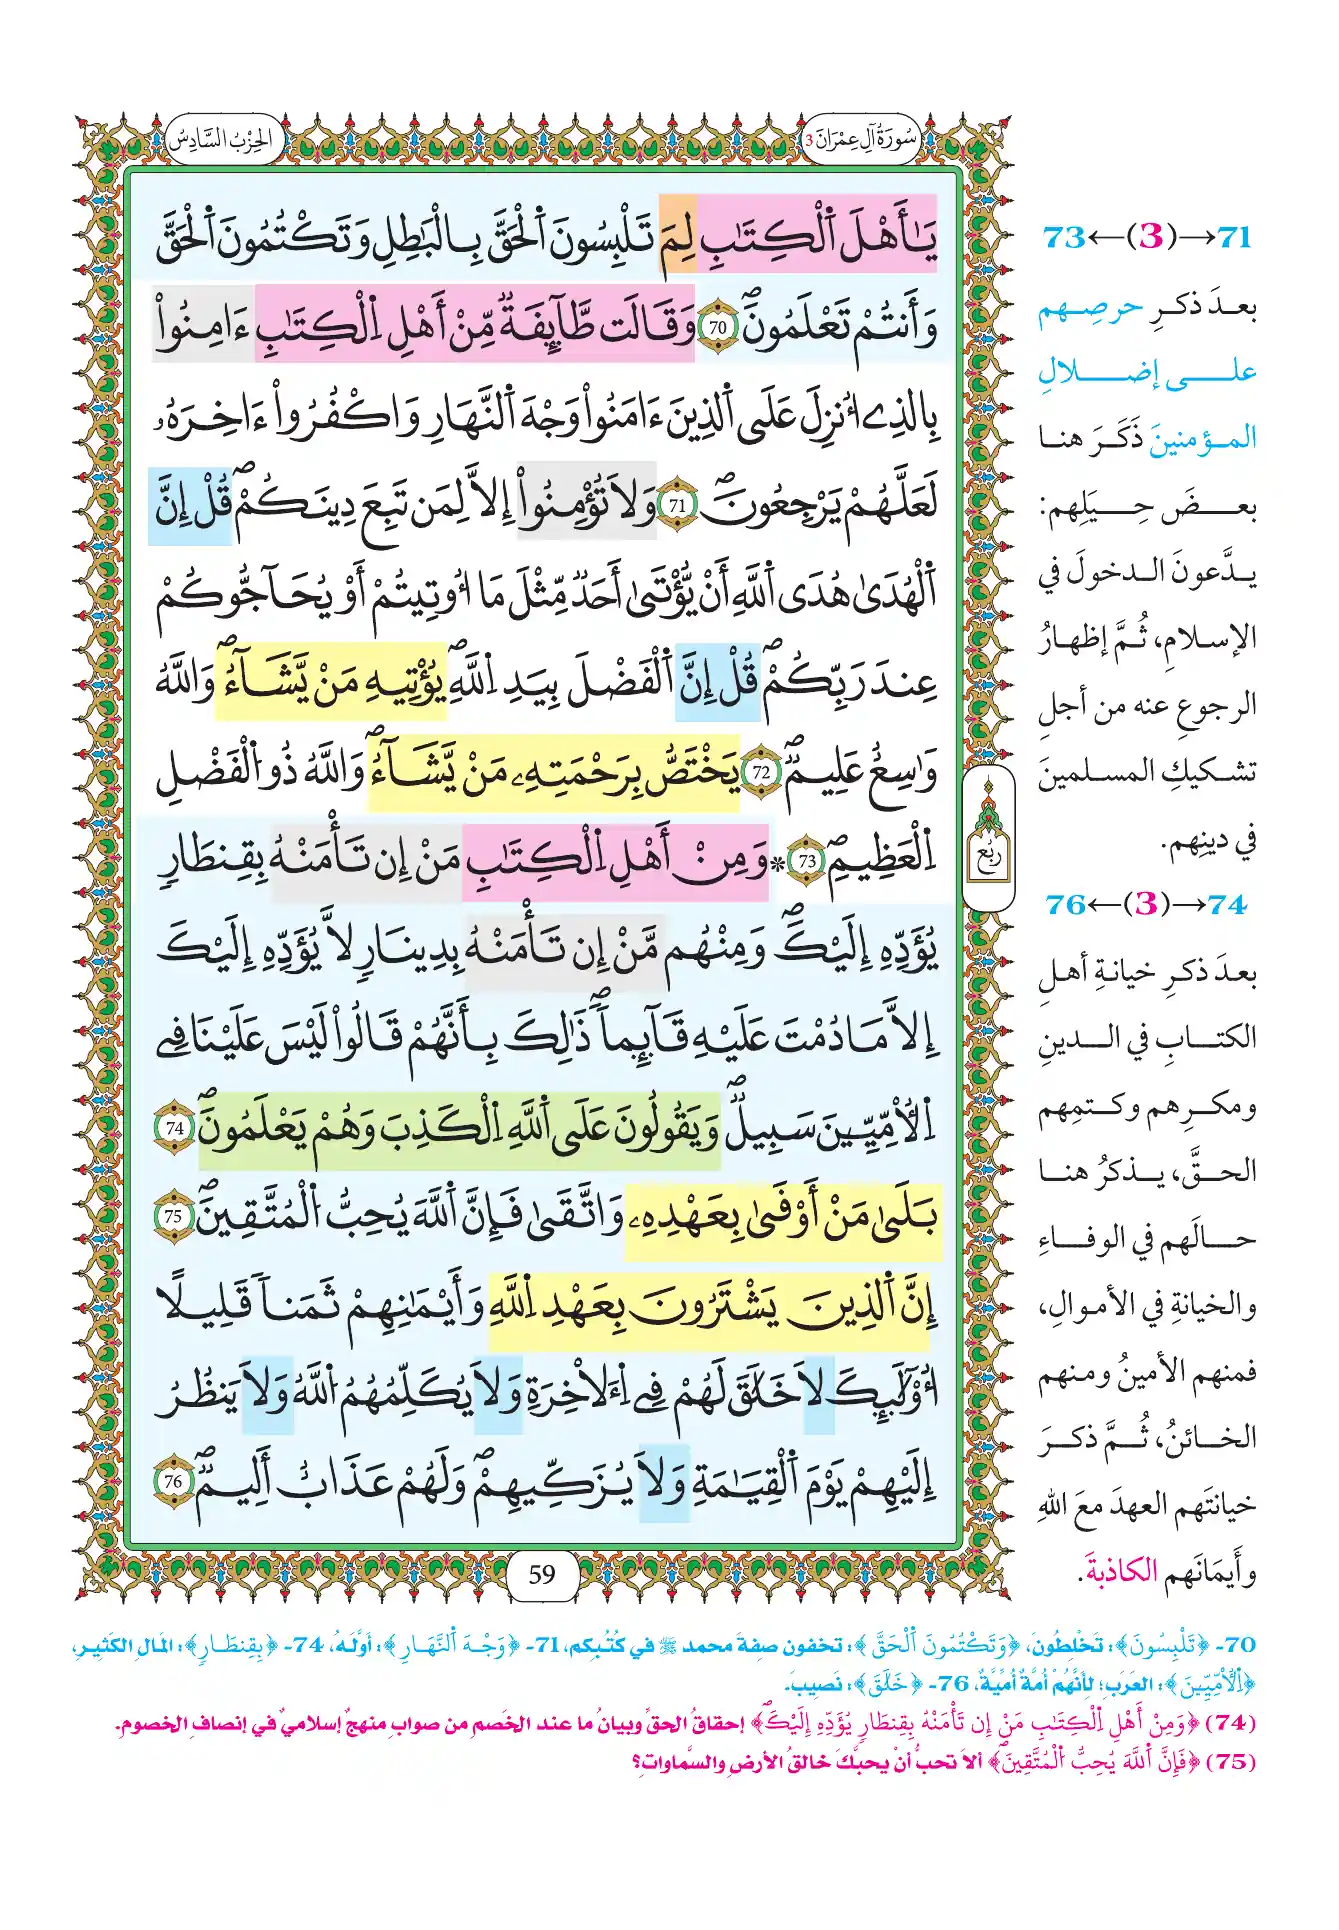 سُورَةُ آلِ عِمْرَانَ 3
الحِزْبُ السَّادِسُ
يَٰأَهْلَ اَ۬لْكِتَٰبِ لِمَ تَلْبِسُونَ اَ۬لْحَقَّ بِالْبَٰطِلِ وَتَكْتُمُونَ اَ۬لْحَقَّ
وَأَنتُمْ تَعْلَمُونَۖ 70 وَقَالَت طَّآئِفَةٞ مِّنْ أَهْلِ اِ۬لْكِتَٰبِ ءَامِنُواْ
بِالذِےٓ أُنزِلَ عَلَى اَ۬لذِينَ ءَامَنُواْ وَجْهَ اَ۬لنَّهَارِ وَاكْفُرُوٓاْ ءَاخِرَهُۥ
لَعَلَّهُمْ يَرْجِعُونَۖ 71 وَلَا تُؤْمِنُوٓاْ إِلَّا لِمَن تَبِعَ دِينَكُمْۖ قُلْ إِنَّ
اَ۬لْهُدَىٰ هُدَى اَ۬للَّهِ أَنْ يُّؤْتَىٰٓ أَحَدٞ مِّثْلَ مَآ أُوتِيتُمْ أَوْ يُحَآجُّوكُمْ
عِندَ رَبِّكُمْۖ قُلْ إِنَّ اَ۬لْفَضْلَ بِيَدِ اِ۬للَّهِۖ يُؤْتِيهِ مَنْ يَّشَآءُۖ وَاللَّهُ
وَٰسِعٌ عَلِيمٞۖ 72 يَخْتَصُّ بِرَحْمَتِهِۦ مَنْ يَّشَآءُۖ وَاللَّهُ ذُو اُ۬لْفَضْلِ
اِ۬لْعَظِيمِۖ 73 * وَمِنْ أَهْلِ اِ۬لْكِتَٰبِ مَنْ إِن تَأْمَنْهُ بِقِنطَارٖ
يُؤَدِّهِۦٓ إِلَيْكَۖ وَمِنْهُم مَّنْ إِن تَأْمَنْهُ بِدِينَارٖ لَّا يُؤَدِّهِۦٓ إِلَيْكَ
إِلَّا مَا دُمْتَ عَلَيْهِ قَآئِماٗۖ ذَٰلِكَ بِأَنَّهُمْ قَالُواْ لَيْسَ عَلَيْنَا فِے
اِ۬لْأُمِّيِّـۧنَ سَبِيلٞۖ وَيَقُولُونَ عَلَى اَ۬للَّهِ اِ۬لْكَذِبَ وَهُمْ يَعْلَمُونَۖ 74
بَلَىٰ مَنْ أَوْفَىٰ بِعَهْدِهِۦ وَاتَّقَىٰ فَإِنَّ اَ۬للَّهَ يُحِبُّ اُ۬لْمُتَّقِينَۖ 75
إِنَّ اَ۬لذِينَ يَشْتَرُونَ بِعَهْدِ اِ۬للَّهِ وَأَيْمَٰنِهِمْ ثَمَناٗ قَلِيلًا
أُوْلَٰٓئِكَ لَا خَلَٰقَ لَهُمْ فِے اِ۬لْأٓخِرَةِ وَلَا يُكَلِّمُهُمُ اُ۬للَّهُ وَلَا يَنظُرُ
إِلَيْهِمْ يَوْمَ اَ۬لْقِيَٰمَةِ وَلَا يُزَكِّيهِمْۖ وَلَهُمْ عَذَابٌ أَلِيمٞۖ 76
رُبُع
59
71←(3)→73
بعدَ ذكرِ حرصِهم
على إضلالِ
المؤمنينَ ذَكَرَ هنا
بعضَ حِيَلِهم:
يدَّعونَ الدخولَ في
الإسلامِ، ثُمَّ إظهارُ
الرجوعِ عنه من أجلِ
تشكيكِ المسلمينَ
في دينِهم.
74←(3)→76
بعدَ ذكرِ خيانةِ أهلِ
الكتابِ في الدينِ
ومكرِهم وكتمِهم
الحقَّ، يذكرُ هنا
حالَهم في الوفاءِ
والخيانةِ في الأموالِ،
فمنهم الأمينُ ومنهم
الخائنُ، ثُمَّ ذكرَ
خيانتَهم العهدَ معَ اللهِ
وأَيمَانَهم الكاذبةَ.
70- ﴿تَلْبِسُونَ﴾: تَخْلِطُونَ، ﴿وَتَكْتُمُونَ اَ۬لْحَقَّ﴾: تخفون صِفةَ محمد ﷺ في كُتُبِكم، 71- ﴿وَجْهَ اَ۬لنَّهَارِ﴾: أوَّلَهُ، 74- ﴿بِقِنطَارٖ﴾: المَالِ الكَثِيرِ،
﴿اِ۬لْأُمِّيِّـۧنَ﴾: العَرَبِ؛ لِأَنَّهُمْ أُمَّةٌ أُمِّيَّةٌ، 76- ﴿خَلَٰقَ﴾: نَصِيبَ.
(74) ﴿وَمِنْ أَهْلِ اِ۬لْكِتَٰبِ مَنْ إِن تَأْمَنْهُ بِقِنطَارٖ يُؤَدِّهِۦٓ إِلَيْكَۖ﴾ إحقاقُ الحقِّ وبيانُ ما عند الخَصمِ من صوابٍ منهجٌ إسلاميٌ في إنصافِ الخصوم.
(75) ﴿فَإِنَّ اَ۬للَّهَ يُحِبُّ اُ۬لْمُتَّقِينَۖ﴾ ألَا تحبُّ أنْ يحبَّكَ خالقُ الأرضِ والسَّماواتِ؟